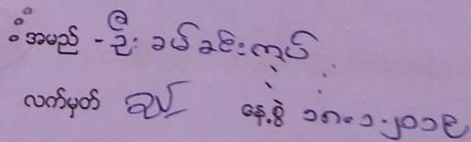 အမည် - ဦး ခမ်ခင်းကုပ်
လက်မှတ် နေ့စွဲ ၁၈-၁-၂၀၁၉